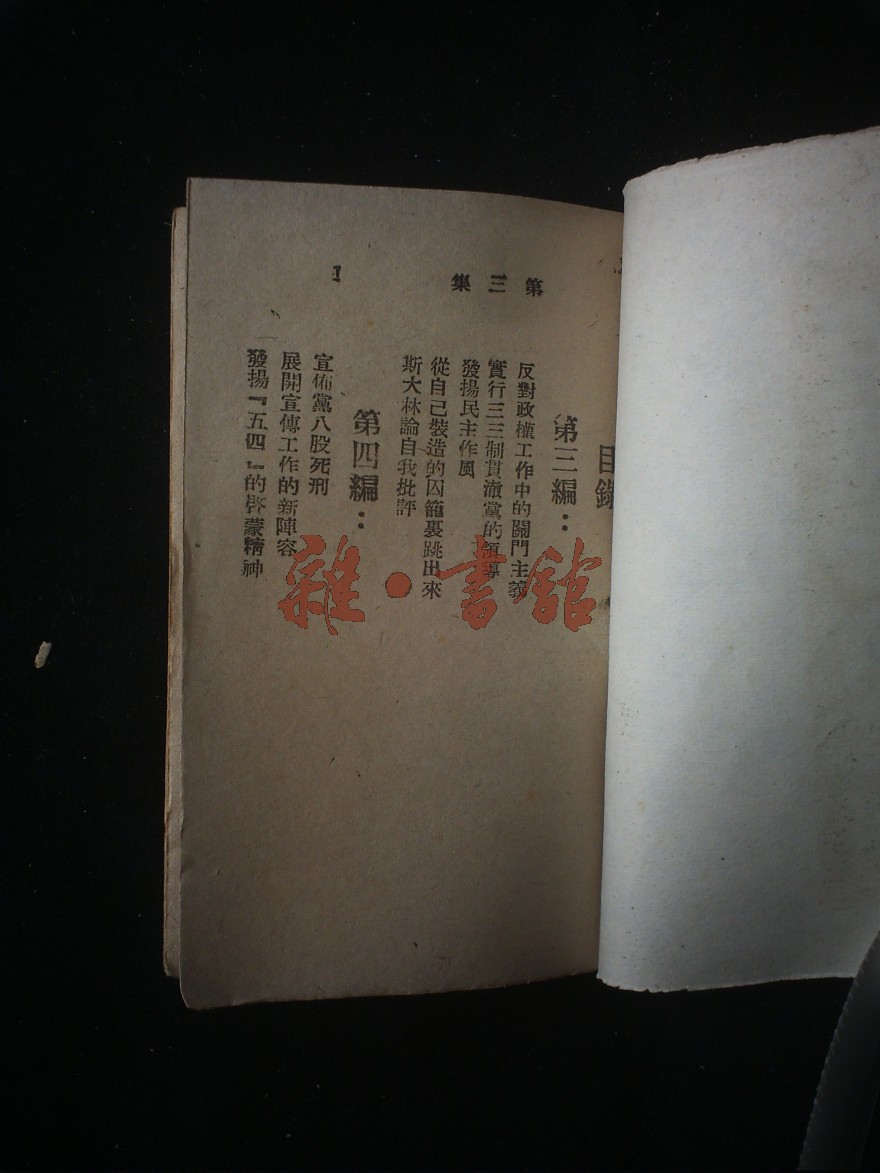 第三集
1
目錄
第三編：
反對政權工作中的關門主義
實行三三制貫澈黨的領導
發揚民主作風
從自己裝造的囚籠裏跳出來
斯大林論自我批評
第四編：
宣佈黨八股死刑
展開宣傳工作的新陣容
發揚『五四』的啓蒙精神
雜·書館